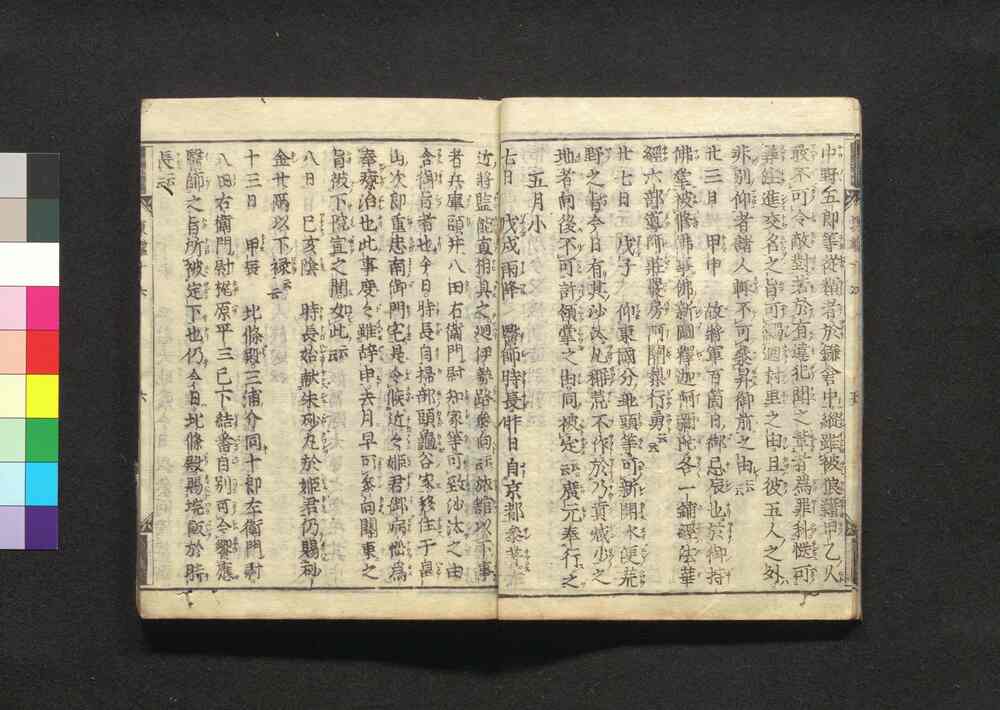 中野五郎等從類者於鎌倉中縱雖被狼藉甲乙人
敢不可令敵對若於有違犯聞之輩者爲罪科慥可
尋注進交名之旨可觸廻村里之由且彼五人之外
非別仰者諸人輙不可參昇御前之由云云
廿三日　甲申　故將軍百箇日御忌辰也於御持
佛堂被修佛事佛新圖釋迦阿彌陀各一鋪經法華
經六部導師莊嚴房阿闍梨行勇云云
廿七日　戊子　仰東國分地頭等可新開水便荒
野之旨今日有其沙汰凡稱荒不作於乃貢減少之
地者向後不可許領掌之由同被定云云廣元奉行之
五月小
七日　戊戌雨降　醫師時長昨日自京都參著
近將監能直相具之廻伊勢路參向云云旅館以下事
者兵庫頭并八田右衞門尉知家等可致沙汰之由
含御旨者也今日時長自掃部頭龜谷家移住于畠
山次郎重忠南御門宅是令候近々姫君御病惱爲
奉療治也此事度々雖辞申去月早可參向關東之
旨被下院宣之間如此云云
八日　己亥陰　時長始獻朱砂丸於姫君仍賜砂
金廿兩以下禄云云
十三日　甲辰　北條殿三浦介同十郎左衞門尉
八田右衞門尉梶原平三已下結番日別可令饗應
醫師之旨所被定下也仍今日北條殿賜埦飯於時
長云云
五
六